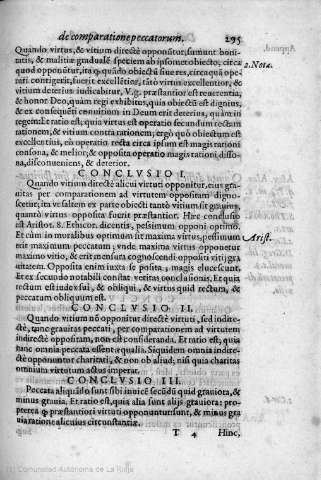 de comparatione peccatorum. 295
Quando virtus, & vitium directè opponũtur, sumunt boni-
tatis, & malitiæ gradualẽ speciem ab ipsomet obiecto, circa 2. Nota.
quod opponũtur, ita ꝙ quãdo obiectũ siue res, circa quã ope-
rari contigerit, fuerit excellẽtior, tãtò virtus excellentior, &
vitium deterius iudicabitur, V.g. præstantior est reuerentia,
& honor Deo, quam regi exhibitus, quia obiectũ est dignius,
& ex consequẽti conuitium in Deum erit deterius, quàm in
regem: Et ratio est, quia virtus est operatio secundum rectam
rationem, & vitium contra rationem; ergò quò obiectum est
excellentius, eò operatio recta circa ipsum est magis rationi
consona, & melior, & opposita operatio magis rationi disso-
na, disconueniens, & deterior.
CONCLVSIO I.
Quando vitium directè alicui virtuti opponitur, eius gra-
uitas per comparationem ad virtutem oppositam digno-
scetur, ita vt saltem ex parte obiecti tantò vitium sit grauius,
quantò virtus opposita fuerit præstantior. Hæc conclusio
est Aristot. 8. Ethicor. dicentis, pessimum opponi optimo.
Et cùm in moralibus optimum sit maxima virtus, pessimum Arist.
erit maximum peccatum; vnde maxima virtus opponetur
maximo vitio, & erit mensura cognoscendi oppositi vitij gra-
uitatem. Opposita enim iuxta se posita, magis elucescunt.
Et ex secundo notabili constat veritas conclusionis. Et quia
rectum est index sui, & obliqui, & virtus quid rectum, &
peccatum obliquum est.
CONCLVSIO II.
Quando vitium nõ opponitur directè virtuti, sed indire-
ctè, tunc grauitas peccati, per comparationem ad virtutem
indirectè oppositam, non est consideranda. Et ratio est, quia
hanc omnia peccata essent æqualia. Siquidem omnia indire-
ctè opponuntur charitati, & non ob aliud, nisi quia charitas
omnium virtutum actus imperat.
CONCLVSIO III.
Peccata aliquãdo sunt sibi inuicẽ secũdũ quid grauiora, &
minus grauia. Et ratio est, quia alia sunt alijs grauiora: pro-
pterea ꝙ præstantiori virtuti opponuntur sunt, & minus gra
uia ratione alicuius circunstantiæ.
T 4 Hinc,
(c) Comunidad Autónoma de La Rioja